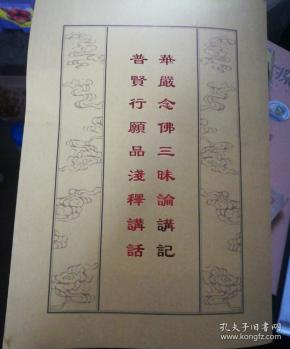 華嚴念佛三昧論講記
普賢行願品淺釋講話
孔夫子旧书网
www.kongfz.com